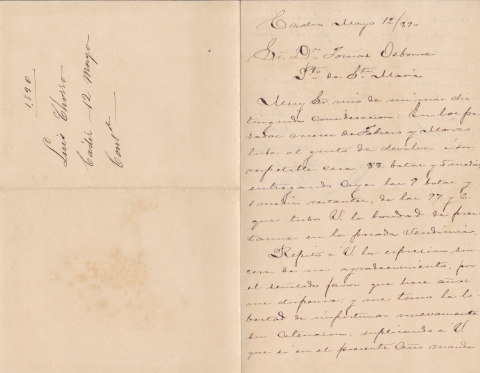 1890
Luis Chorro
Cadiz 12 Mayo
Contda
Cadiz Mayo 12/890
Sr. Dn. Tomas Osborne
Pto de Sta Maria
Muy Sr. mio de mi mas dis-
tinguida consideracion: En los pa-
sados meses de Febrero y Marzo
tube el gusto de devolver a su
respetable casa 88 botas y 5 medias
entregando ayer las 9 botas y
1 media restantes, de las 97 y 6
que tubo V. la bondad de pres-
tarme en la pasada Vendimia.
Repito a V. la espresion sin-
cera de mi agradecimiento, por
el señalado favor que hace años
me dispensa; y me tomo la li-
bertad de importunar nuevamente
su atencion, suplicando a V.
que si en el presente año